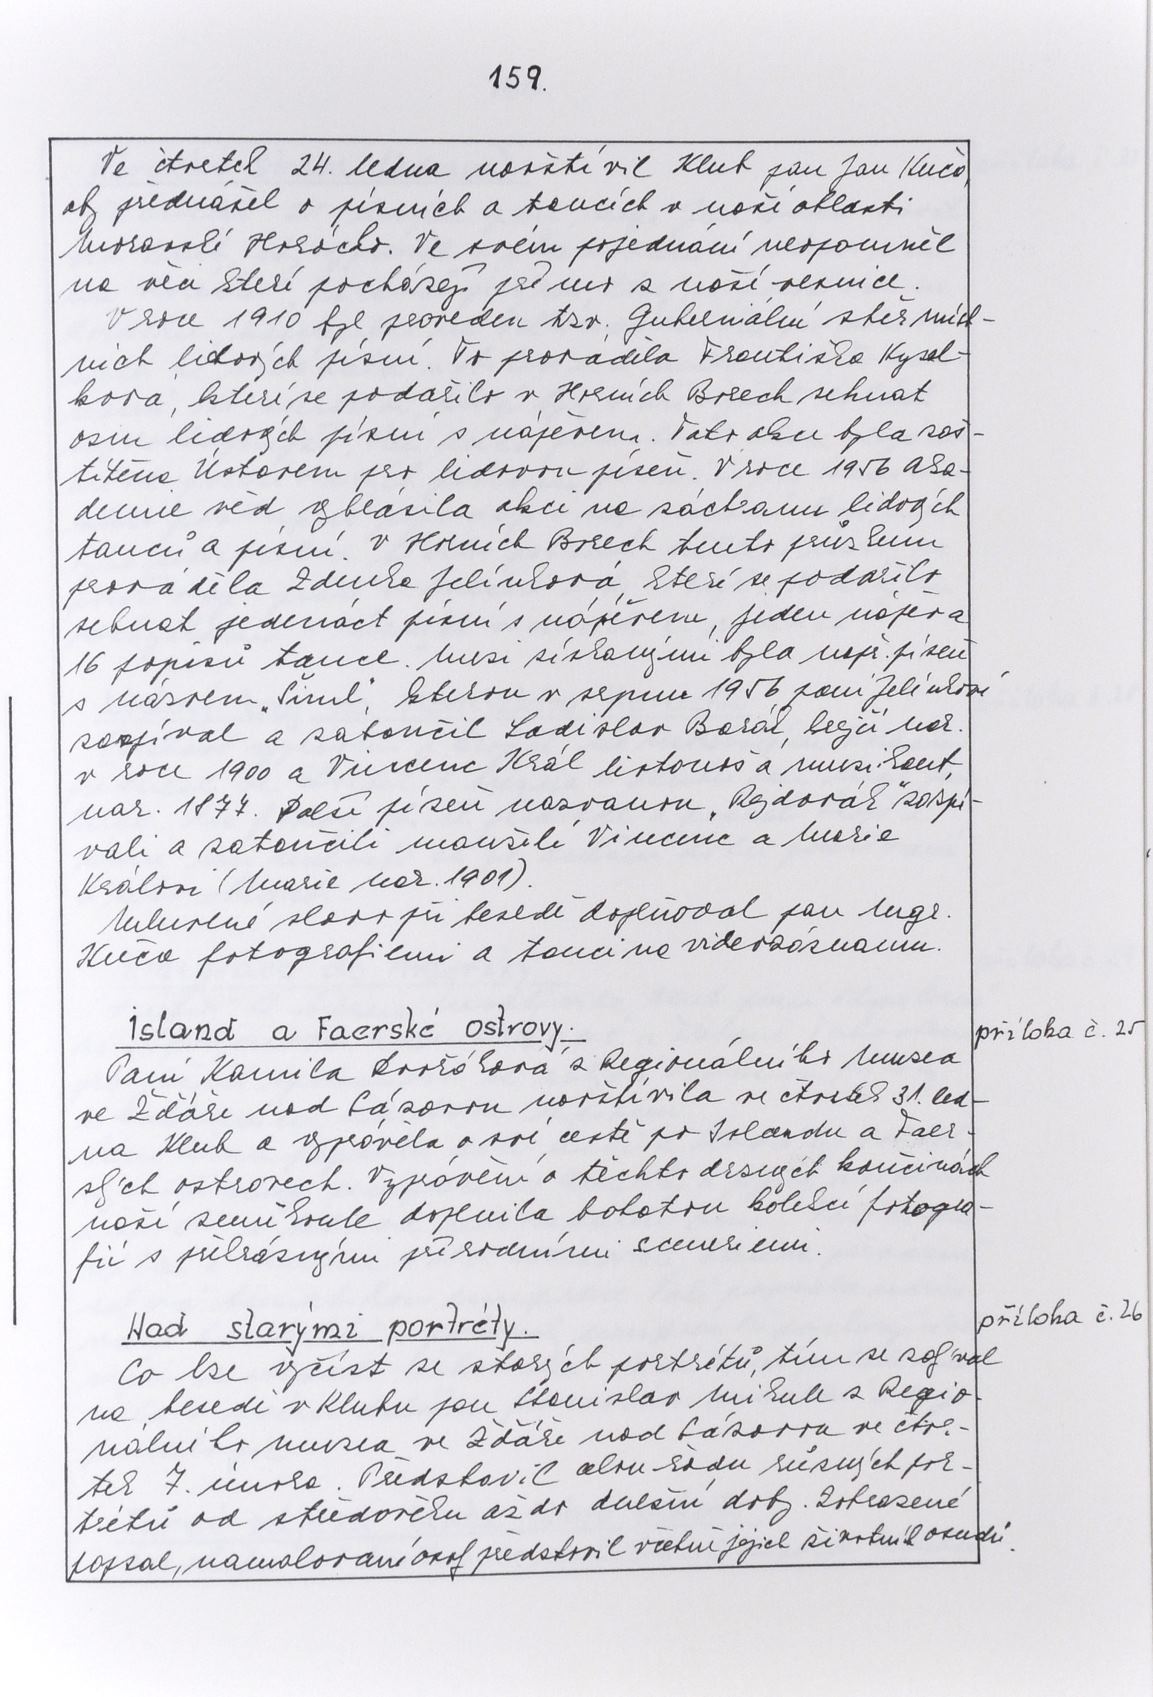 159.
Ve čtvrtek 24. ledna navštívil Klub pan Jan Kuča,
aby přednášel o písních a tancích v naší oblasti
Moravské Horácko. Ve svém pojednání neopomněl
na věci které pocházejí přímo z naší vesnice.
V roce 1910 byl proveden tzv. Guberniální sběr míst-
ních lidových písní. To prováděla Františka Kysel-
ková, které se podařilo v Horních Borech sehnat
osm lidových písní s nápěvem. Tato akce byla zaš-
títěna Ústavem pro lidovou píseň. V roce 1956 Aka-
demie věd vyhlásila akci na záchranu lidových
tanců a písní. V Horních Borech tento průzkum
prováděla Zdenka Jelínková, které se podařilo
sehnat jedenáct písní s nápěvem, jeden nápěv a
16 popisů tance. Mezi získanými byla např. píseň
s názvem „Šiml", kterou v srpnu 1956 paní Jelínkové
zazpíval a zatančil Ladislav Barák, krejčí nar.
v roce 1900 a Vincenc Král listonoš a muzikant,
nar. 1877. Další píseň nazvanou „Rejdovák" zazpí-
vali a zatančili manželé Vincenc a Marie
Královi (Marie nar. 1901).
Mluvené slovo při besedě doplňoval pan Mgr.
Kuča fotografiemi a tanci na videozáznamu.
Island a Faerské ostrovy.
příloha č. 25
Paní Kamila Dvořáková z Regionálního muzea
ve Žďáře nad Sázavou navštívila ve čtvrtek 31. led-
na Klub a vyprávěla o své cestě po Islandu a Faer-
ských ostrovech. Vyprávění o těchto drsných končinách
naší zeměkoule doplnila bohatou kolekcí fotogra-
fií s překrásnými přírodními scenériemi.
Nad starými portréty.
příloha č. 26
Co lze vyčíst ze starých portrétů, tím se zabýval
na besedě v Klubu pan Stanislav Mikule z Regio-
nálního muzea ve Žďáře nad Sázavou ve čtvr-
tek 7. února. Představil celou řadu různých por-
trétů od středověku až do dnešní doby. Zobrazené
popsal, namalované osoby představil včetně jejich životních osudů.